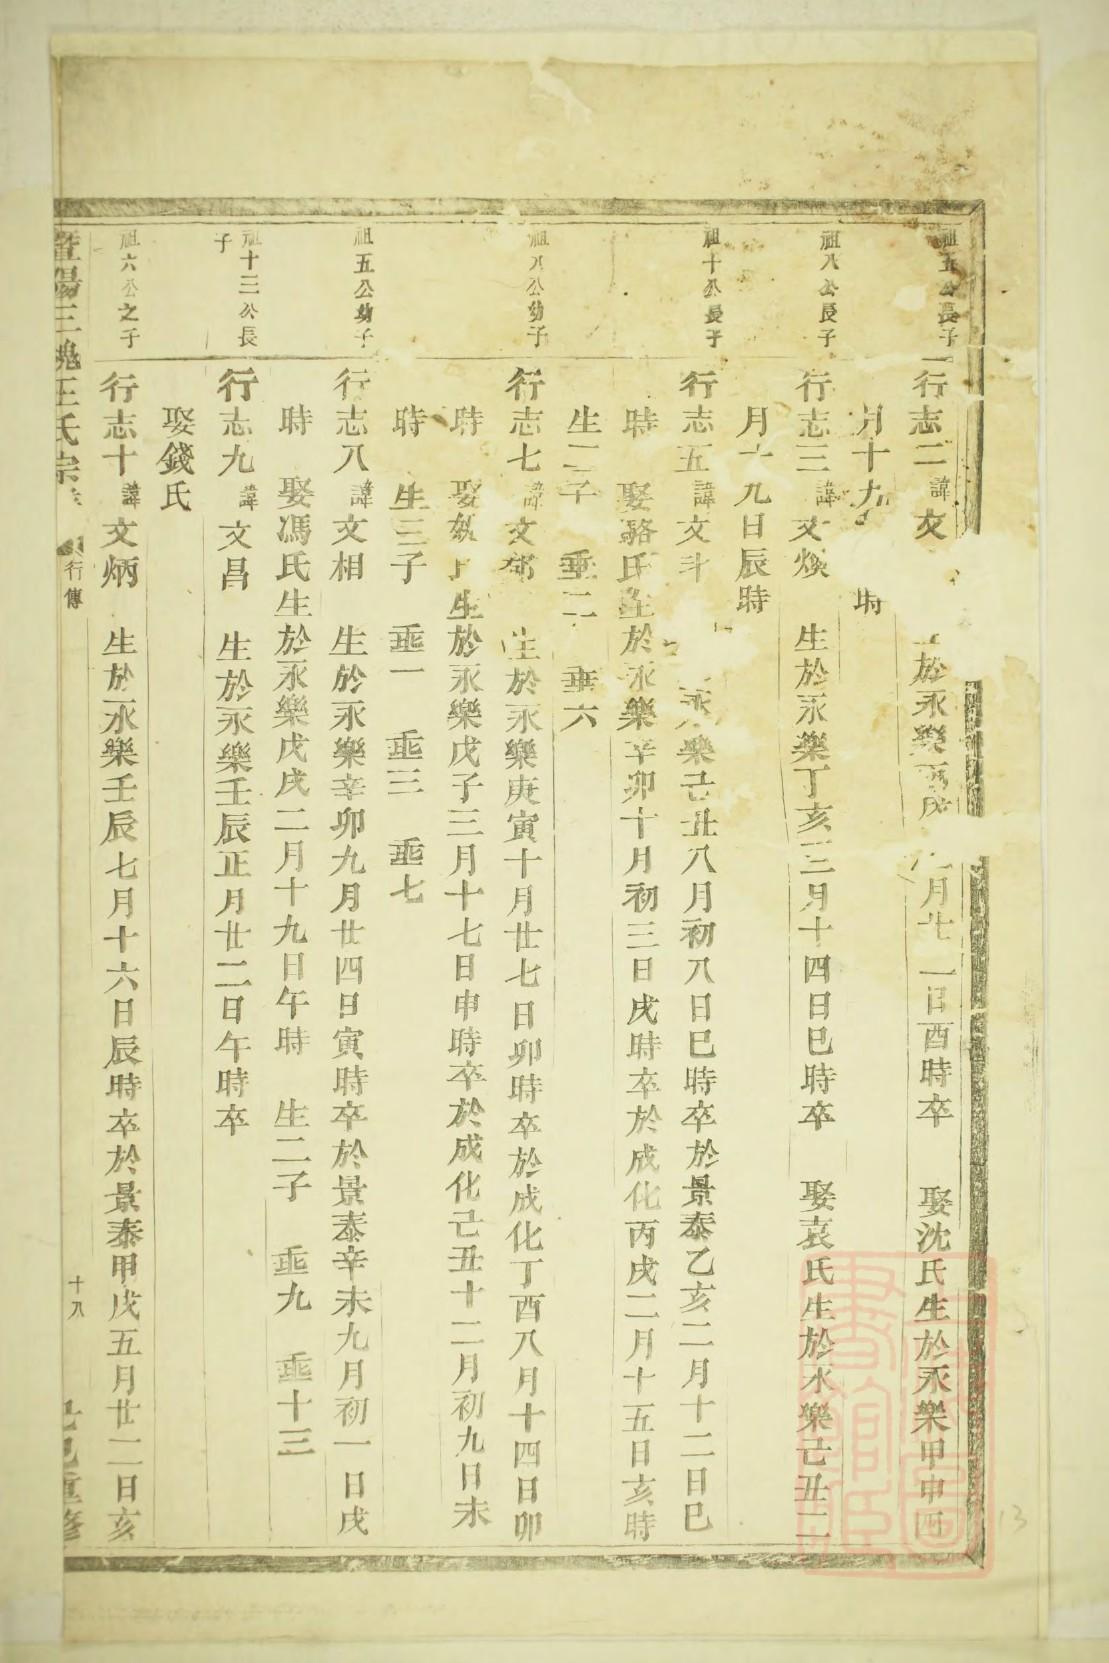 祖五公長子
行志二 諱文 於永樂丙戌 月廿一日酉時卒 娶沈氏生於永樂甲申四
月十九 時
祖八公長子
行志三 諱文煥 生於永樂丁亥三月十四日巳時卒 娶袁氏生於永樂己丑二
月十九日辰時
祖十公長子
行志五 諱文斗 永樂己丑八月初八日巳時卒於景泰乙亥二月十二日巳
時 娶駱氏生於永樂辛卯十月初三日戌時卒於成化丙戌二月十五日亥時
生二子 垂二 垂六
祖八公幼子
行志七 諱文郁 生於永樂庚寅十月廿七日卯時卒於成化丁酉八月十四日卯
時 娶 氏生於永樂戊子三月十七日申時卒於成化己丑十二月初九日未
時 生三子 垂一 垂三 垂七
祖五公幼子
行志八 諱文相 生於永樂辛卯九月廿四日寅時卒於景泰辛未九月初一日戌
時 娶馮氏生於永樂戊戌二月十九日午時 生二子 垂九 垂十三
祖十三公長
子
行志九 諱文昌 生於永樂壬辰正月廿二日午時卒
娶錢氏
祖六公之子
行志十 諱文炳 生於永樂壬辰七月十六日辰時卒於景泰甲戌五月廿二日亥
暨陽三槐王氏宗 行傳 十八 己巳重修
13